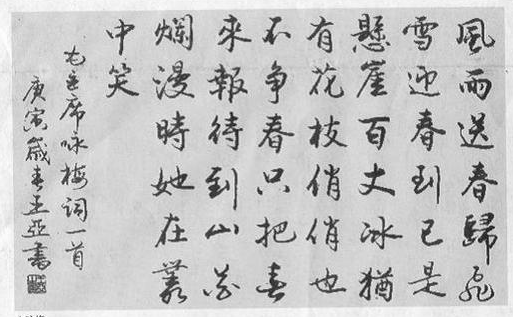 風雨送春歸飛
雪迎春到已是
懸崖百丈冰猶
有花枝俏俏也
不争春只把春
來報待到山花
爛漫時她在叢
中笑
毛主席咏梅詞一首
庚寅歲春王亞書